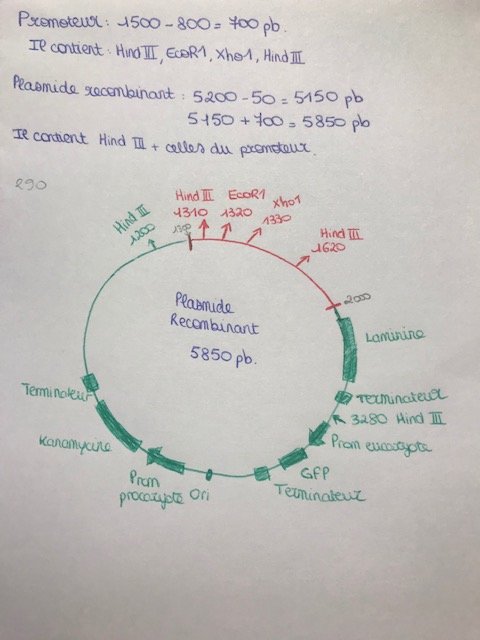 Promoteur : 1500 - 800 = 700 pb.
Il contient : Hind III, EcoR1, Xho1, Hind III
Plasmide recombinant : 5200 - 50 = 5150 pb
5150 + 700 = 5850 pb
Il contient Hind III + celles du promoteur.
290
Hind III
1200
1300
Hind III
1310
EcoR1
1320
Xho1
1330
Hind III
1620
2000
Plasmide
Recombinant
5850 pb.
Laminine
Terminateur
3280 Hind III
Prom eucaryote
GFP
Terminateur
Ori
Prom
procaryote
Kanamycine
Terminateur